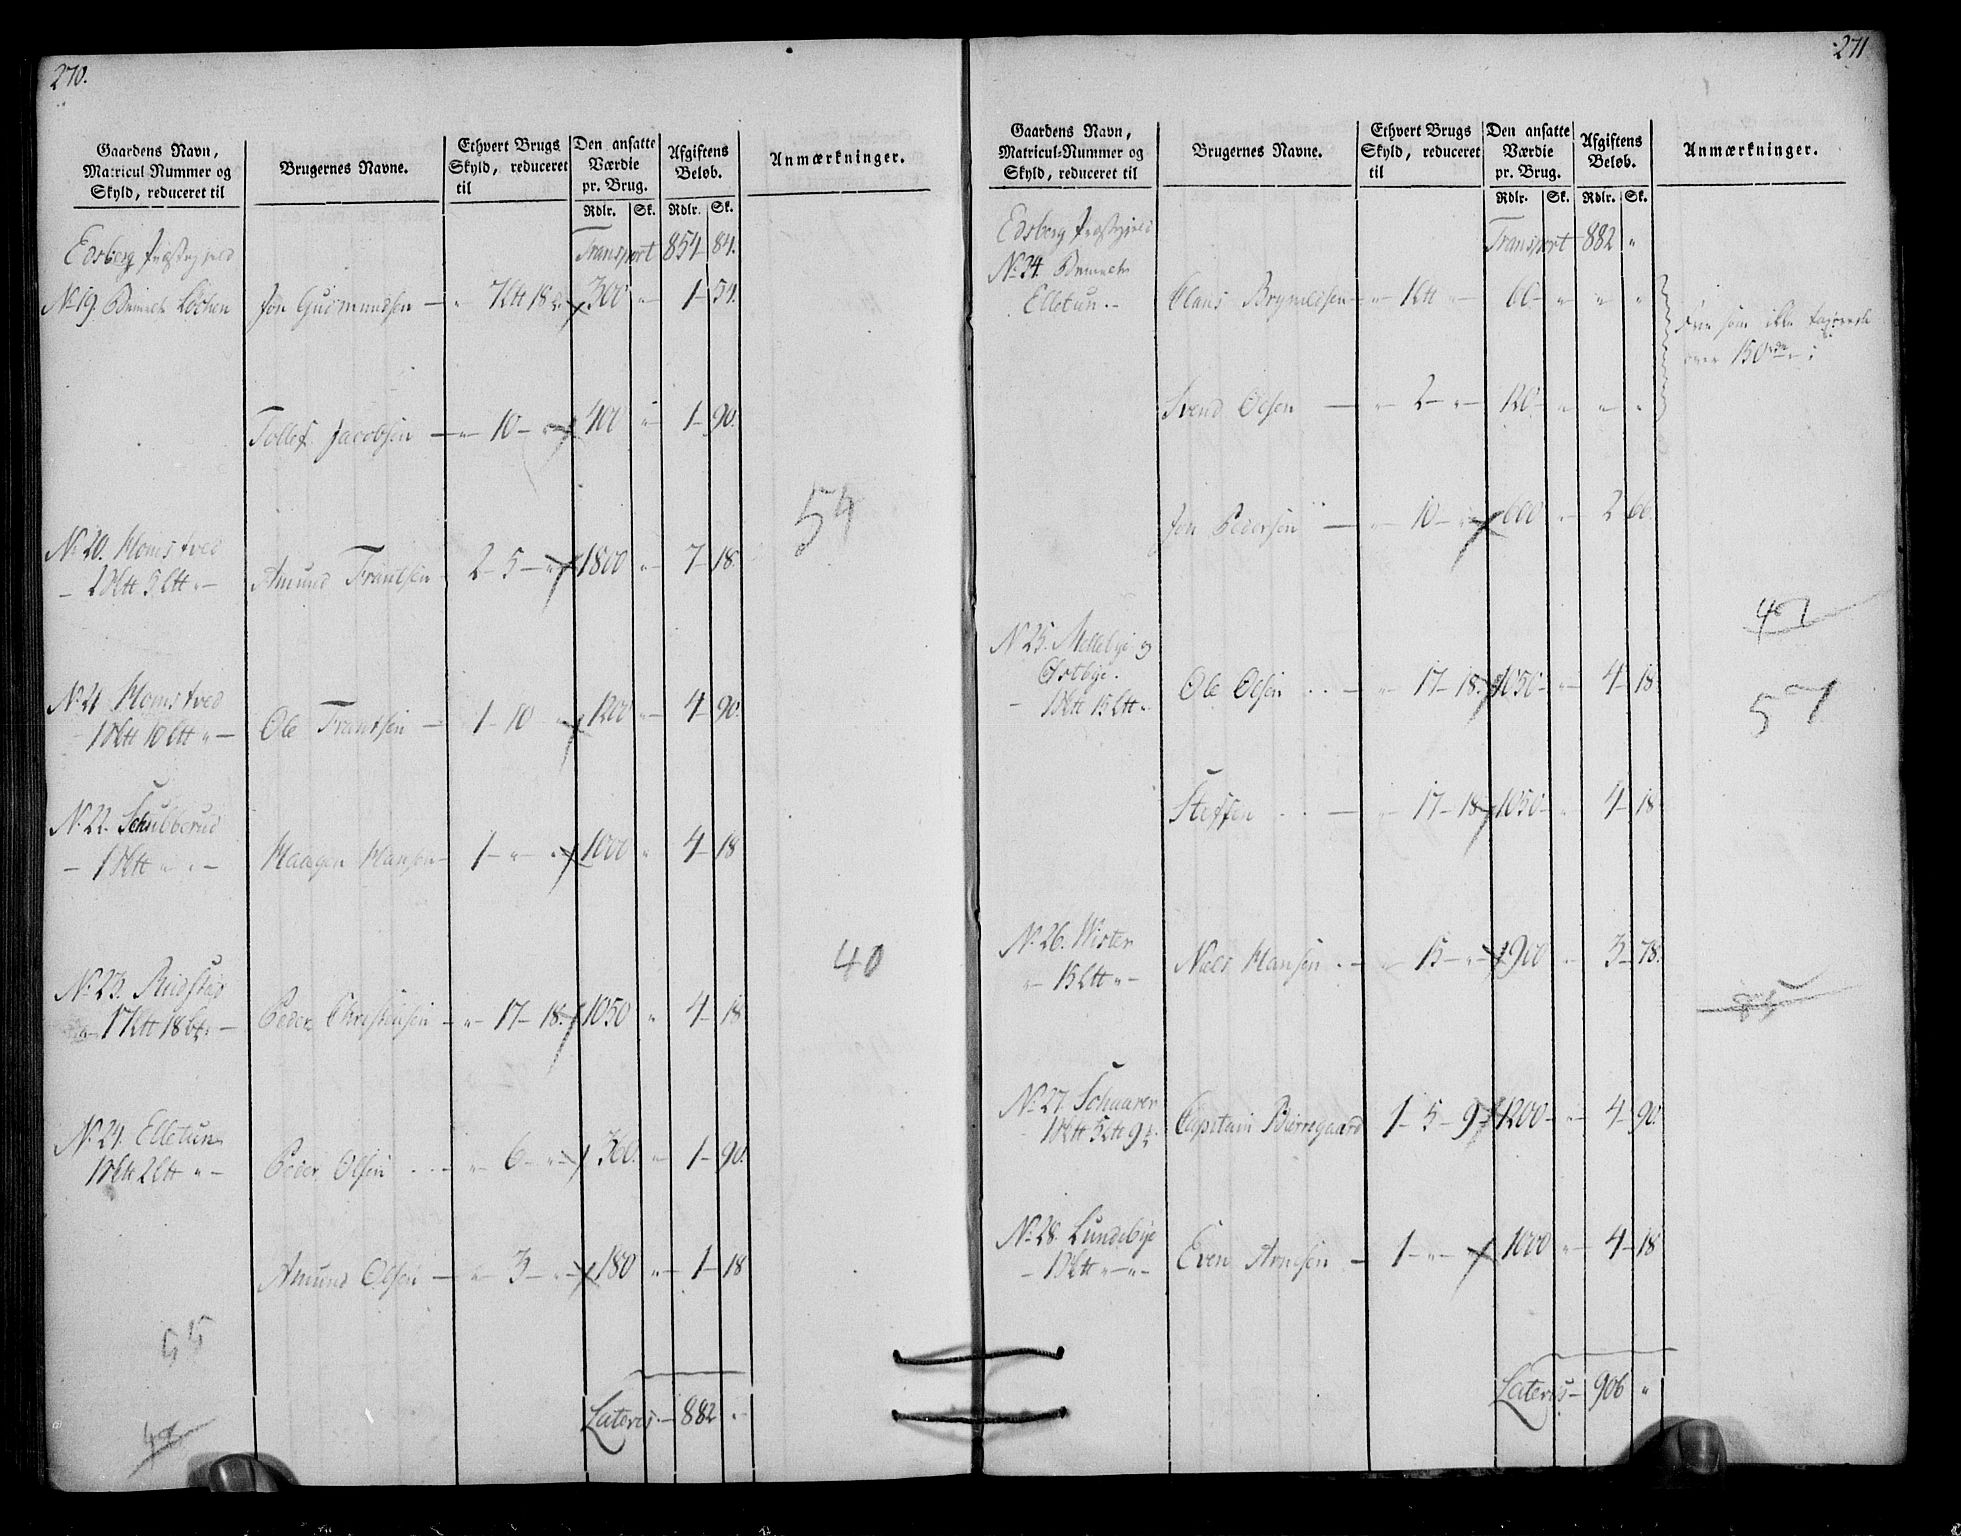 270.
Gaardens Navn, Matricul Nummer og Skyld, reduceret til
Brugernes Navne.
Ethvert Brugs Skyld, reduceret til
Den ansatte Værdie pr. Brug.
Afgiftens Beløb.
Anmærkninger.
Rdlr. Sk. Rdlr. Sk.
Edsberg Præstegield Transport 854 84.
No 19. Jon Gudmundsen — " 7 Ltt 18 300 " — 1 — 54.
Tollef Jacobsen — " — 10 — 400 " — 1 — 90.
54
No 20. Homstved
— 2 Sktt 5 Ltt " — Amund Frantsen 2 — 5 — " 1800 " — 7 — 18.
No 21 Homstved
1 Sktt 10 Ltt " — Ole Frantsen — 1 — 10 1200 " — 4 — 90.
No 22. Schulberud
— 1 Sktt " " — Haagen Hansen — 1 — " — 1000 " 4 — 18
40
No 23. Rudstad
" — 17 Ltt 18 — Peder Christensen — " — 17 — 18. 1050 " 4 — 18
No 24. Elletun
1 Sktt 2 Ltt " — Peder Olsen — " — 6 — " 360. " — 1 — 90.
Amund Olsen — " — 3 — " 180 " — 1 — 18
55
Lateris — 882 "
271
Gaardens Navn, Matricul-Nummer og Skyld, reduceret til
Brugernes Navne.
Ethvert Brugs Skyld, reduceret til
Den ansatte Værdie pr. Brug.
Afgiftens Beløb.
Anmærkninger.
Rdlr. Sk. Rdlr. Sk.
Edsberg Præstegield Transport 882 "
No 24.
Elletun. Claus Brynildsen — " 1 Ltt " — 60 — " " "
som ikke
over 150
Svend Olsen — " — 2 — " — 120 — " " "
Jon Pedersen — " — 10 — 600 " — 2 — 60.
No 25. Mellebye og
Østbye.
— 1 Sktt 15 Ltt " Ole Olsen — " 17 — 18. 1050 — " — 4 — 18
57
Steffen — " 17 — 18 1050 — 4 — 18
No 26. Wister
" — 15 Ltt " — Niels Hansen — " 15 — " 900 — 3 — 78.
No 27. Schaarer
1 Sktt 5 Ltt 9 Capitain Bierregaard 1 — 5 — 9 1200 — " — 4 — 90.
No 28. Lundebye
— 1 Sktt " — " — Even Arnesen — 1 — " — 1000 " — 4 — 18
Lateris — 906 "